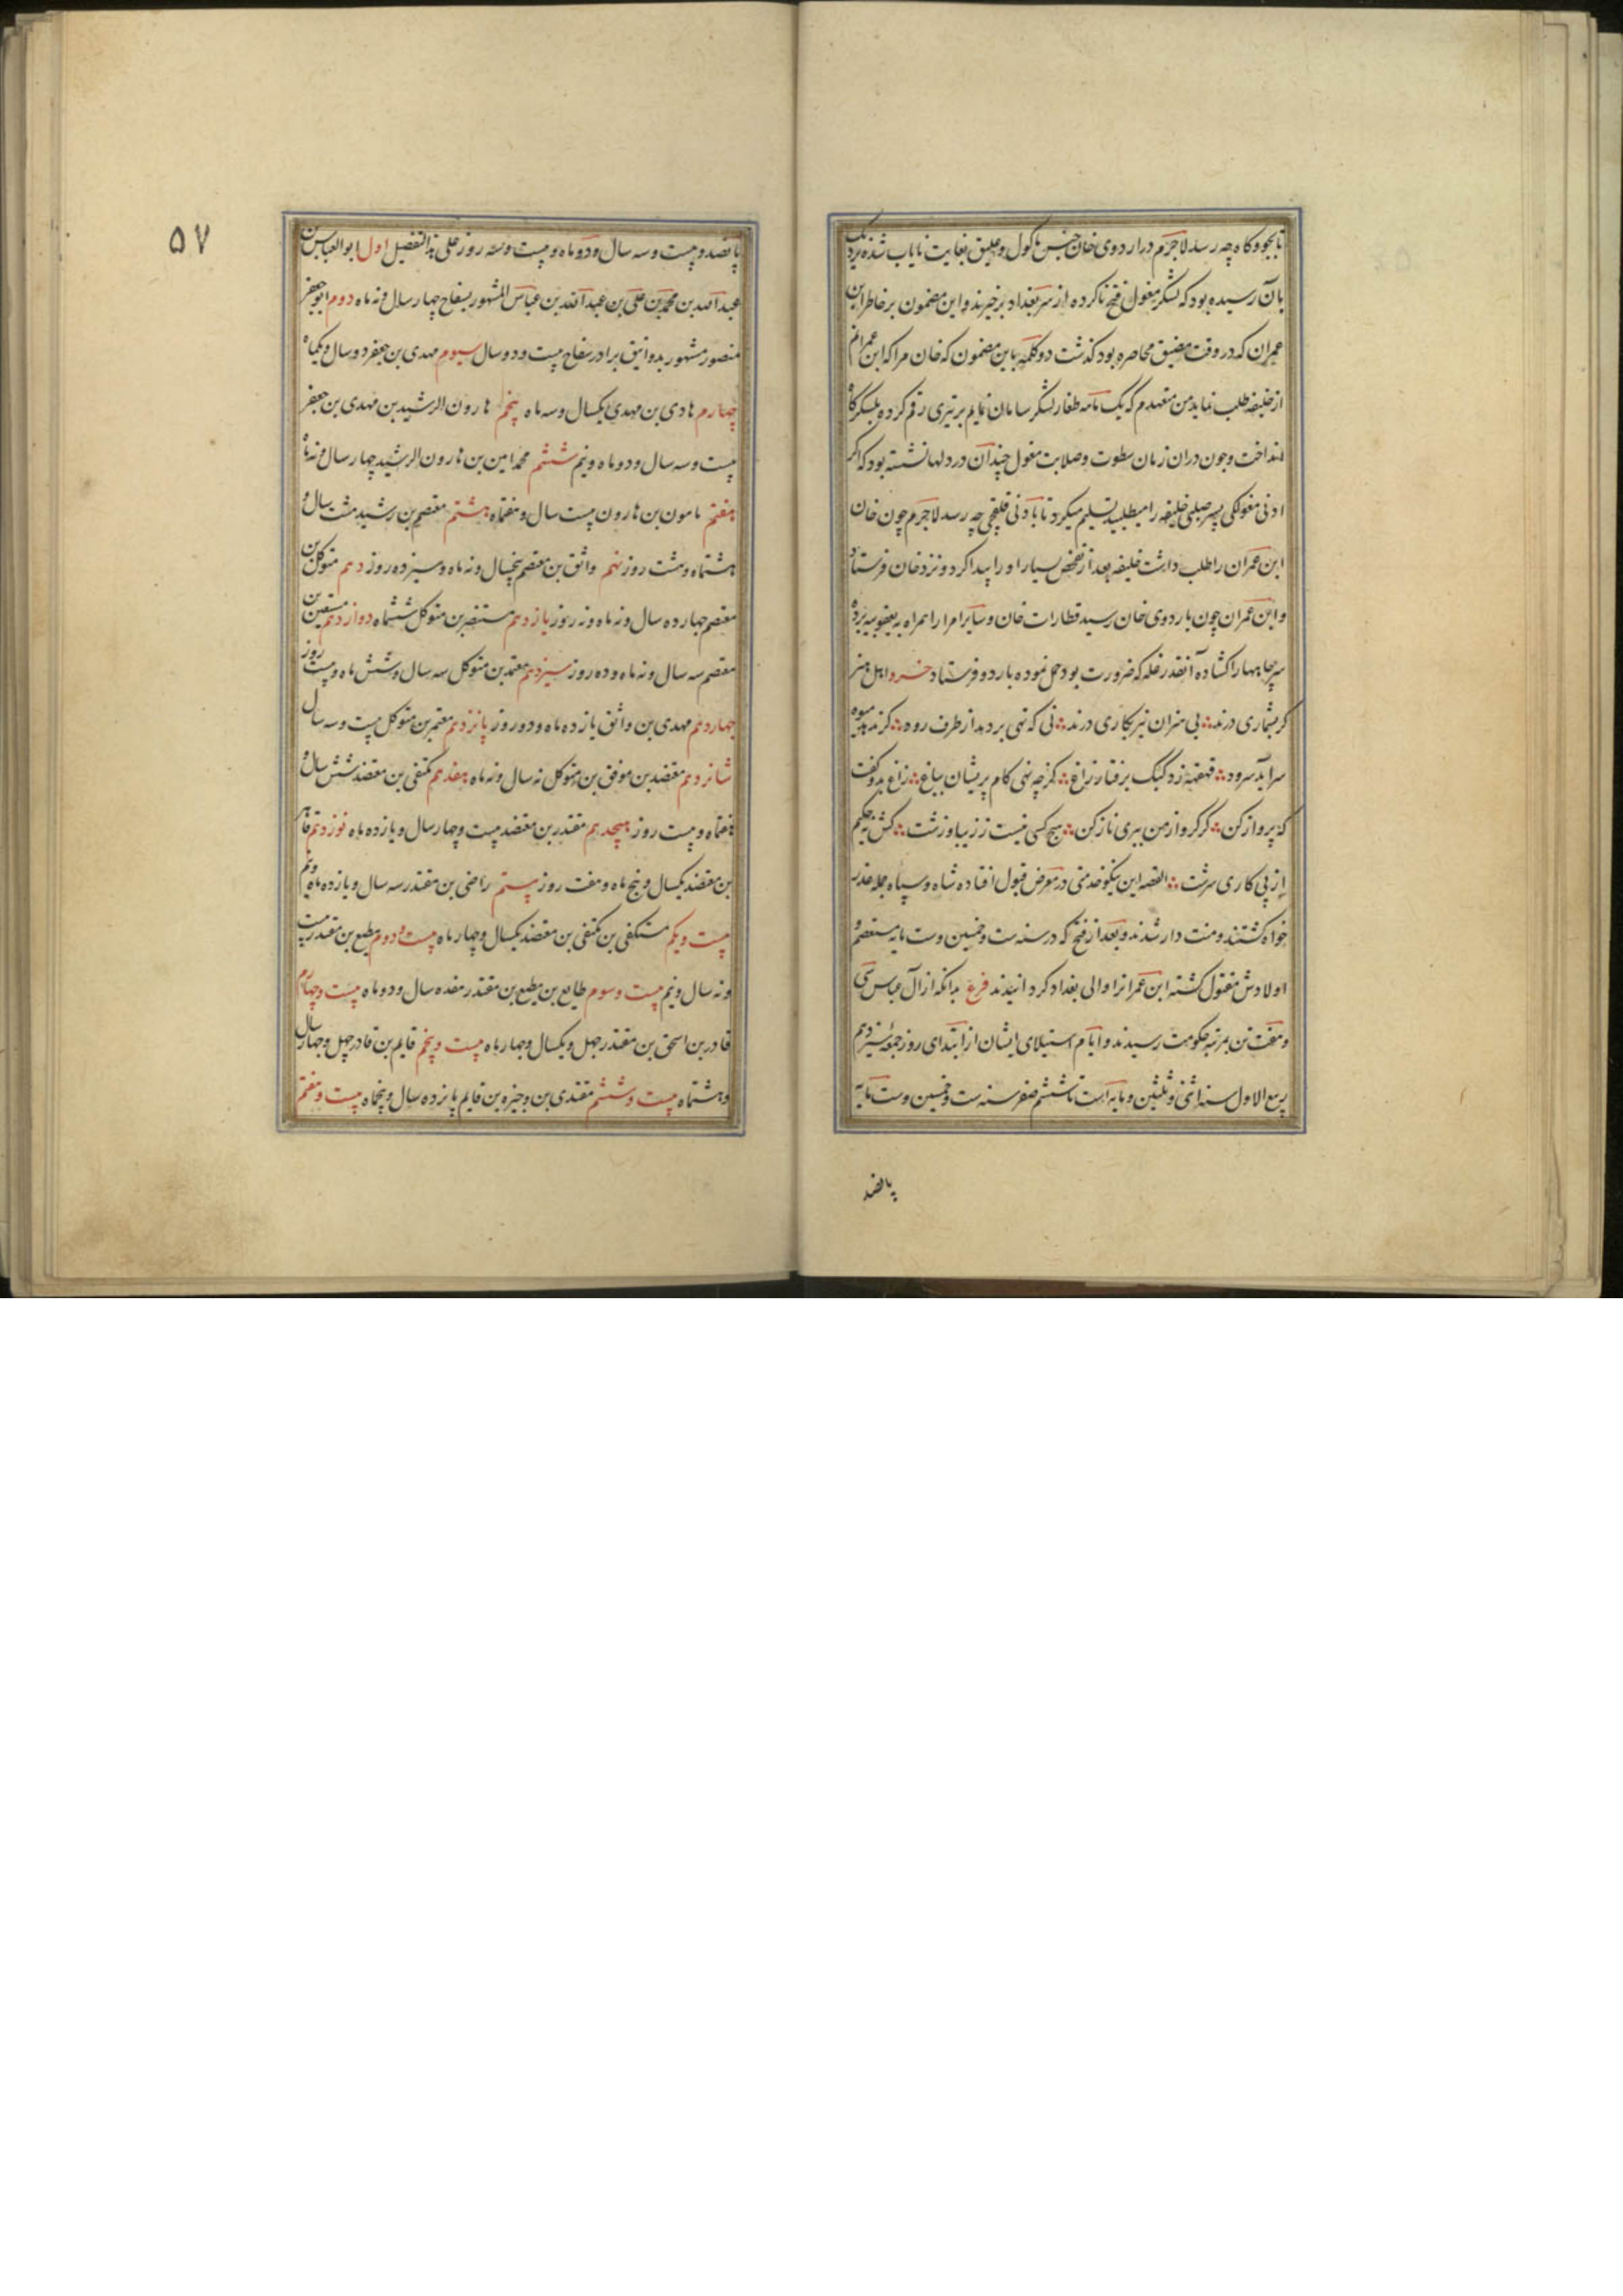 تا بجو و کاه چه رسد لاجرم در اردوی خان جنس ماکول و علیق بغایت نایاب شده نزدیک
بآن رسیده بود که لشکر مغول فتح ناکرده از سر بغداد برخیزند و این مضمون بر خاطر ابن
عمران که در وقت مضیق محاصره بود کذشت دو کلمه باین مضمون که خان مرا که ابن عمرانم
از خلیفه طلب نماید من متعهدم که یک ماهه طغار لشکر سامان نمایم بر تیری رقم کرده بلشکرگاه
انداخت و چون دران زمان سطوت و صلابت مغول چندان در دلها نشسته بود که اگر
ادنی مغولکی پسر صلبی خلیفه را میطلبید تسلیم میکرد تا بادنی قلیقچی چه رسد لاجرم چون خان
ابن عمران را طلب داشت خلیفه بعد از تفحص بسیار او را پیدا کرد و نزد خان فرستاد
و ابن عمران چون باردوی خان رسید قطارات خان و سایر امرا را همراه به یعقوبیه برده
سر چاهها را کشاده آنقدر غله که ضرورت بود حمل نموده باردو فرستاد خسرو اهل هنر
کر بشماری درند ؞ بی هنران نیز بکاری درند ؞ نی که تهی بر دمد از طرف رود ؞ کر ندهد میوه
سراید سرود ؞ قهقهه زد کبک برفتار زاغ ؞ کز چه نهی کام پریشان بباغ ؞ زاغ بدو کفت
که پرواز کن ؞ کر کرو از من ببری ناز کن ؞ هیچ کسی نیست ز زیبا و زشت ؞ کش نه حکیم
از پی کاری سرشت ؞ القصه این نیکو خدمتی در معرض قبول افتاده شاه و سپاه جمله عذر
خواه کشتند و منت دار شدند و بعد از فتح که در سنه ست و خمسین و ست مایه مستعصم و
اولادش مقتول کشته ابن عمرانرا والی بغداد کردانیدند فرع بدانکه از آل عباس سی
و هفت تن بمرتبه حکومت رسیدند و ایام استیلای ایشان از ابتدای روز جمعه سیزدهم
ربیع الاول سنه اثنی و ثلثین و مایه است تا ششم صفر سنه ست و خمسین و ست مایه
پانصد
۵۷
پانصد و بیست و سه سال و دو ماه و بیست و سه روز علی هذا التفصیل اول ابو العباس بن
عبد الله بن محمد بن علی بن عبد الله بن عباس المشهور بسفاح چهار سال و نه ماه دوم ابو جعفر
منصور مشهور بدوانیق برادر سفاح بیست و دو سال سیوم مهدی بن جعفر ده سال و یکماه
چهارم هادی بن مهدی یکسال و سه ماه پنجم هارون الرشید بن مهدی بن جعفر
بیست و سه سال و دو ماه و نیم ششم محمد امین بن هارون الرشید چهار سال و نه ماه
هفتم مامون بن هارون بیست سال و هفتماه هشتم معتصم بن رشید هشت سال و
هشتماه و هشت روز نهم واثق بن معتصم پنجسال و نه ماه و سیزده روز دهم متوکل بن
معتصم چهارده سال و نه ماه و نه روز یازدهم مستنصر بن متوکل ششماه دوازدهم مستعین بن
معتصم سه سال و نه ماه و ده روز سیزدهم معتمد بن متوکل سه سال و شش ماه و بیست روز
چهاردهم مهدی بن واثق یازده ماه و دو روز پانزدهم معتمر بن متوکل بیست و سه سال
شانزدهم معتضد بن موفق بن متوکل نه سال و نه ماه هفدهم مکتفی بن معتضد شش سال و
هفتماه و بیست روز هیجدهم مقتدر بن معتضد بیست و چهار سال و یازده ماه نوزدهم قاهر
بن معتضد یکسال و پنج ماه و هفت روز بیستم راضی بن مقتدر سه سال و یازده ماه و نیم
بیست و یکم مستکفی بن مکتفی بن معتضد یکسال و چهار ماه بیست و دوم مطیع بن مقتدر بیست
و نه سال و نیم بیست و سوم طایع بن مطیع بن مقتدر هفده سال و دو ماه بیست و چهارم
قادر بن اسحق بن مقتدر چهل و یکسال و چهار ماه بیست و پنجم قایم بن قادر چهل و چهار سال
و هشتماه بیست و ششم مقتدی بن وخیره بن قایم پانزده سال و پنجماه بیست و هفتم